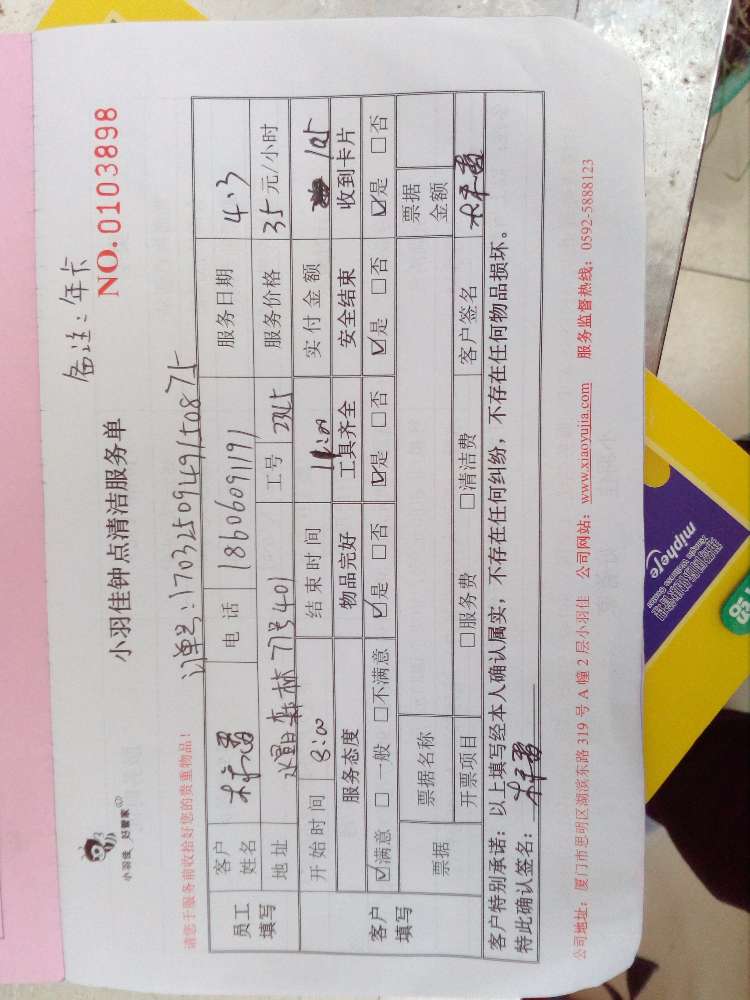 小羽佳 好管家
小羽佳钟点清洁服务单
备注：年卡
NO.0103898
请您于服务前收拾好您的贵重物品！
订单号：170325094915 0875
员工填写 客户姓名 电话 18606091191 服务日期 4.3
地址 7号401 工号 服务价格 35元/小时
开始时间 8:00 结束时间 11:00 实付金额 105
客户填写 服务态度 物品完好 工具齐全 安全结束 收到卡片
☑满意 □一般 □不满意 ☑是 □否 ☑是 □否 ☑是 □否 ☑是 □否
票据 票据名称 票据金额
开票项目 □服务费 □清洁费 客户签名
客户特别承诺：以上填写经本人确认属实，不存在任何纠纷，不存在任何物品损坏。
特此确认签名：
公司地址：厦门市思明区湖滨东路319号A幢2层小羽佳 公司网站：www.xiaoyujia.com 服务监督热线：0592-5888123
miphefe